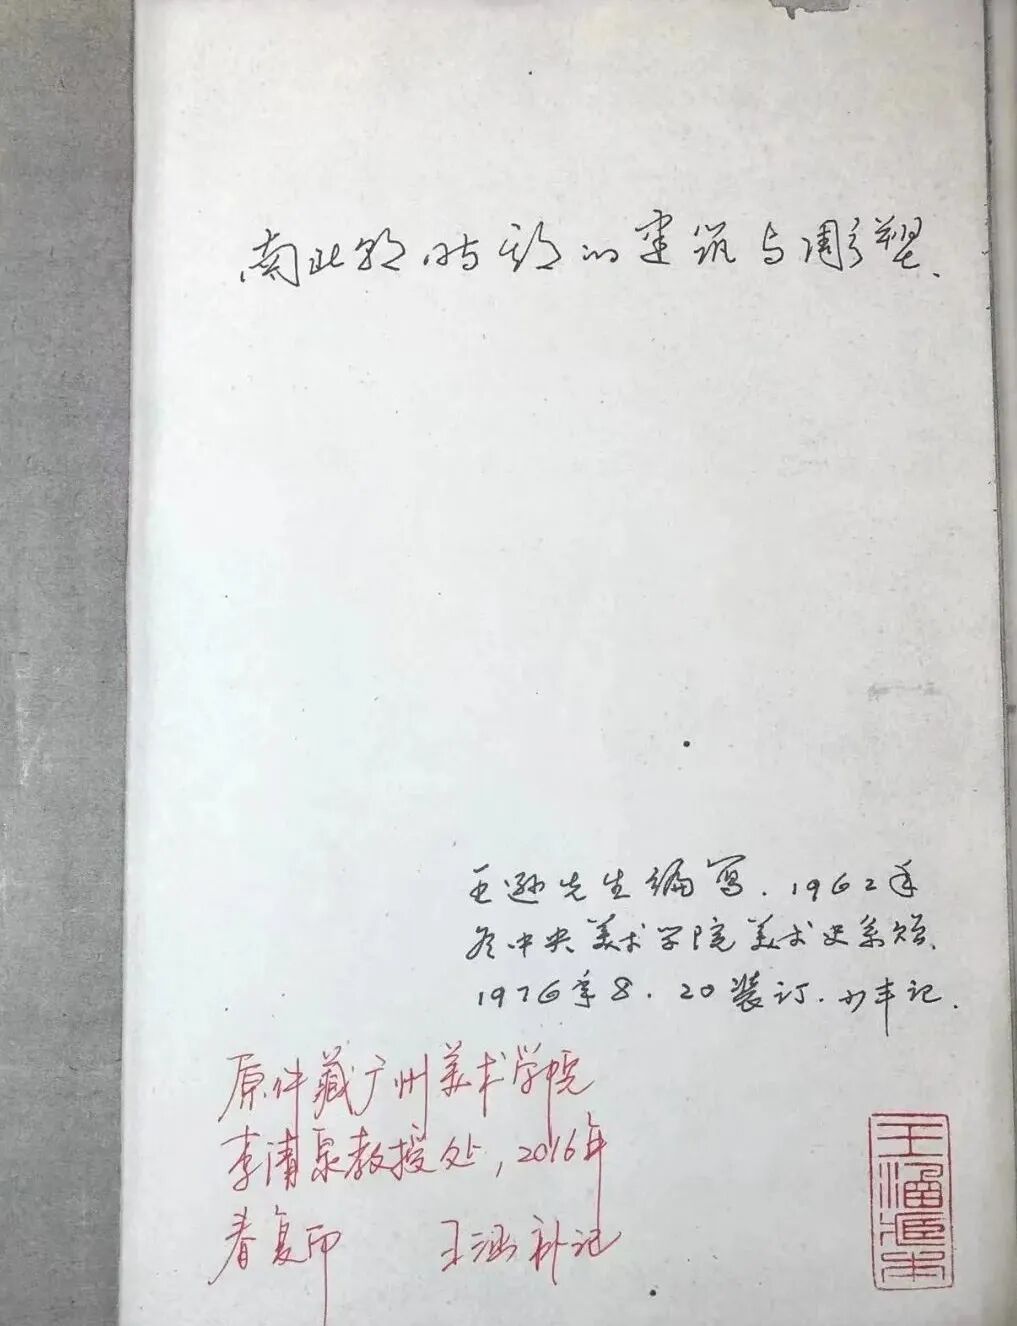 南北朝时期的建筑与雕塑.
王逊先生编写.1962年
冬中央美术学院美术史系赠.
1976年8.20装订.少丰记.
原件藏广州美术学院
李清泉教授处,2016年
春复印 王涵补记
王涵